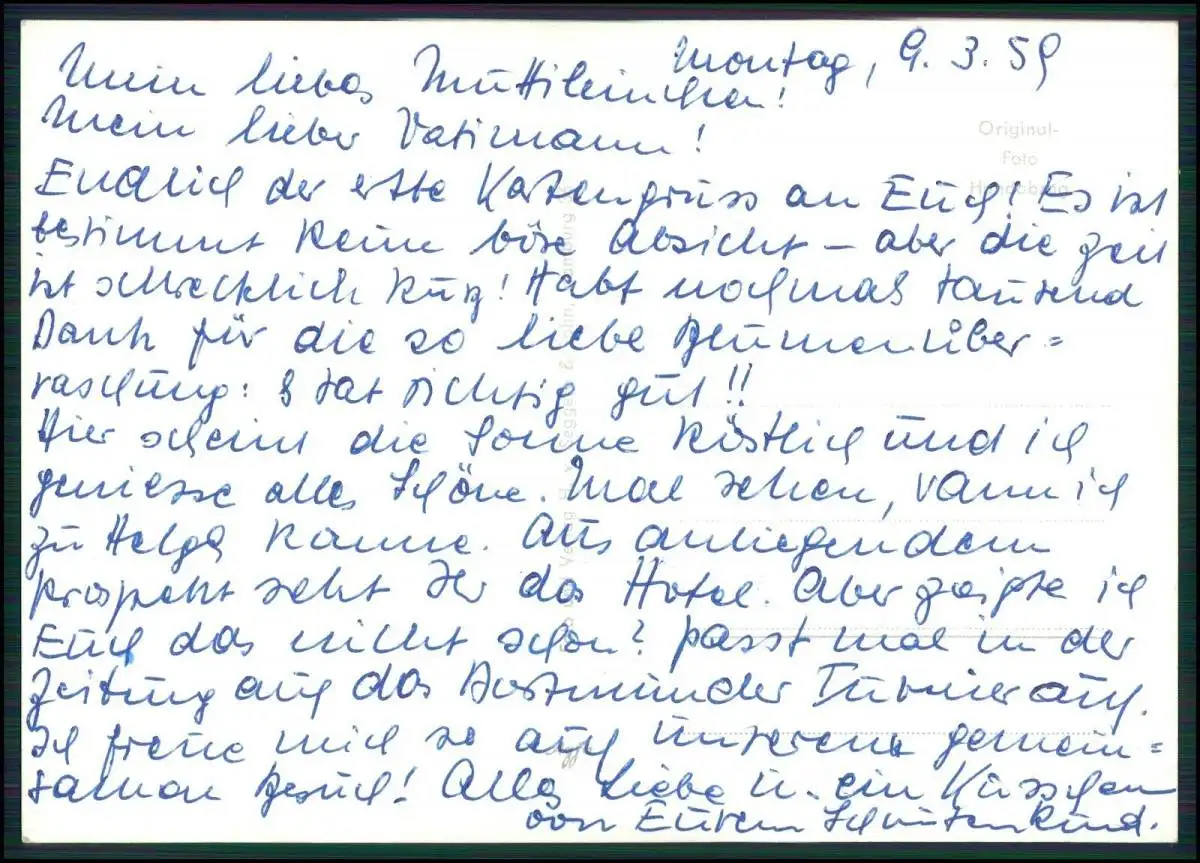 Montag, 9.3.59
Mein liebes Muttileinchen!
Mein lieber Vatimann!
Original-
Foto
Endlich der erste Kartengruss an Euch! Es ist
bestimmt keine böse Absicht – aber die Zeit
ist schrecklich kurz! Habt nochmals tausend
Dank für die so liebe Blumenüber=
raschung: & tat richtig gut!!
Hier scheint die Sonne köstlich und ich
geniesse alles Schöne. Mal sehen, wann ich
zu Helga komme. Aus anliegendem
Prospekt seht Ihr das Hotel. Aber zeigte ich
Euch das nicht schon? Passt mal in der
Zeitung auf das Dortmunder Turnier auf.
Ich freue mich so auf unseren gemein=
samen Besuch! Alles Liebe u. ein Küsschen
von Eurem